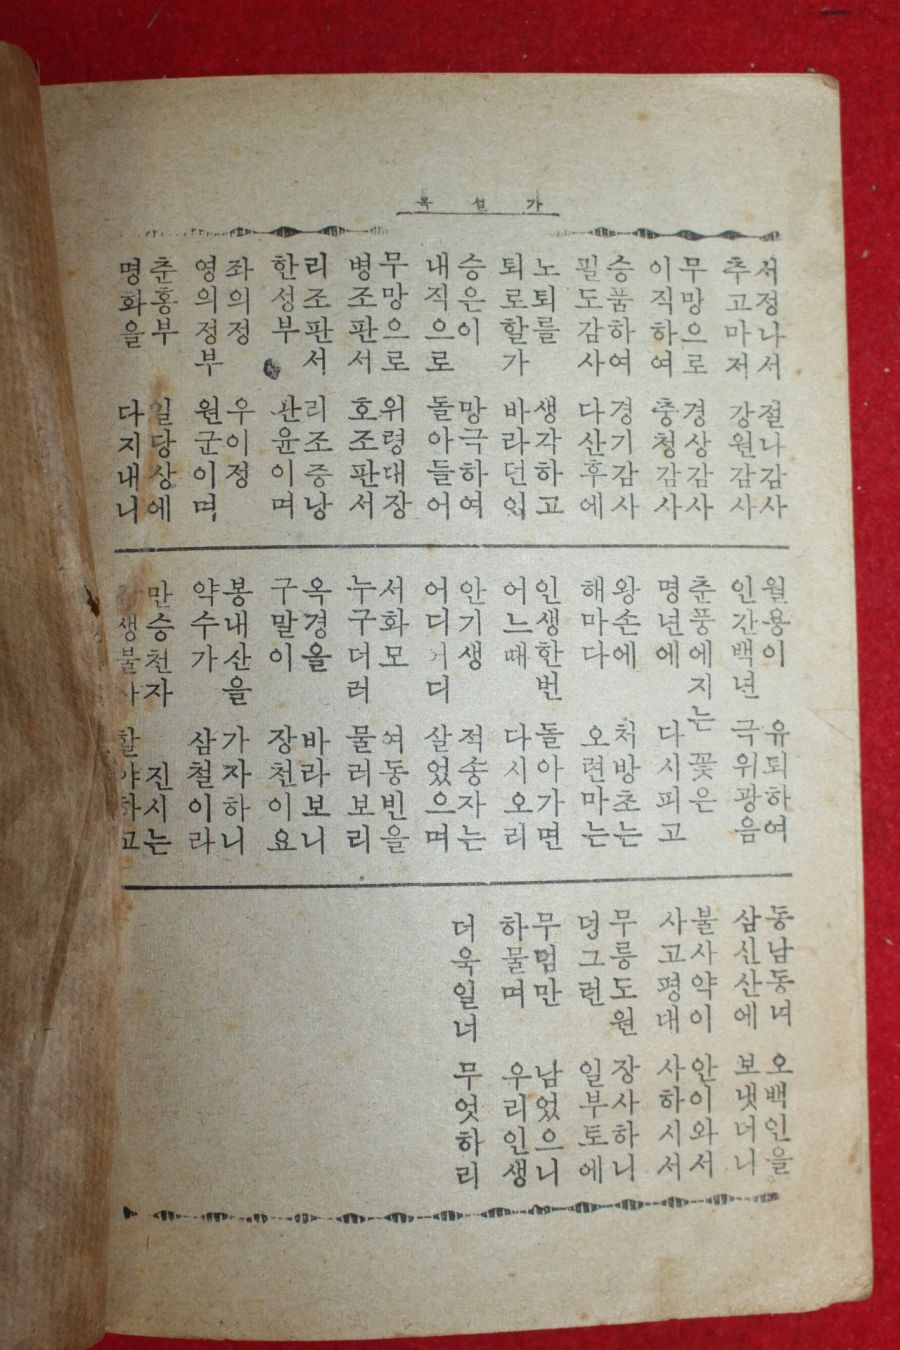 옥 설 가
서정나서 절나감사
추고마저 강원감사
무망으로 경상감사
이직하여 충청감사
승품하여 경기감사
필도감사 다산후에
노퇴를 생각하고
퇴로할가 바라던
승은이 망극하여
내직으로 돌아들어
무망으로 위령대장
병조판서 호조판서
리조판서 리조증낭
한성부 판윤이며
좌의정 우이정
영의정부 원군이며
춘홍부 일당상에
명화을 다지내니
월용이 유퇴하여
인간백년 극위광음
춘풍에지는 꽃은
명년에 다시피고
왕손에 처방초는
해마다 오련마는
인생한번 돌아가면
어느때 다시오리
안기생 적송자는
어디거디 살었으며
서화모 여동빈을
누구더러 물러보리
옥경을 바라보니
구말이 장천이요
봉내산을 가자하니
약수가 삼철이라
만승천자 진시는
생불사 할야하고
동남동녀 오백인을
삼신산에 보냇너니
불사약이 안이와서
사고평대 사하시서
무릉도원 장사하니
덩그런 일부토에
무덤만 남었으니
하물며 우리인생
더욱일너 무엇하리